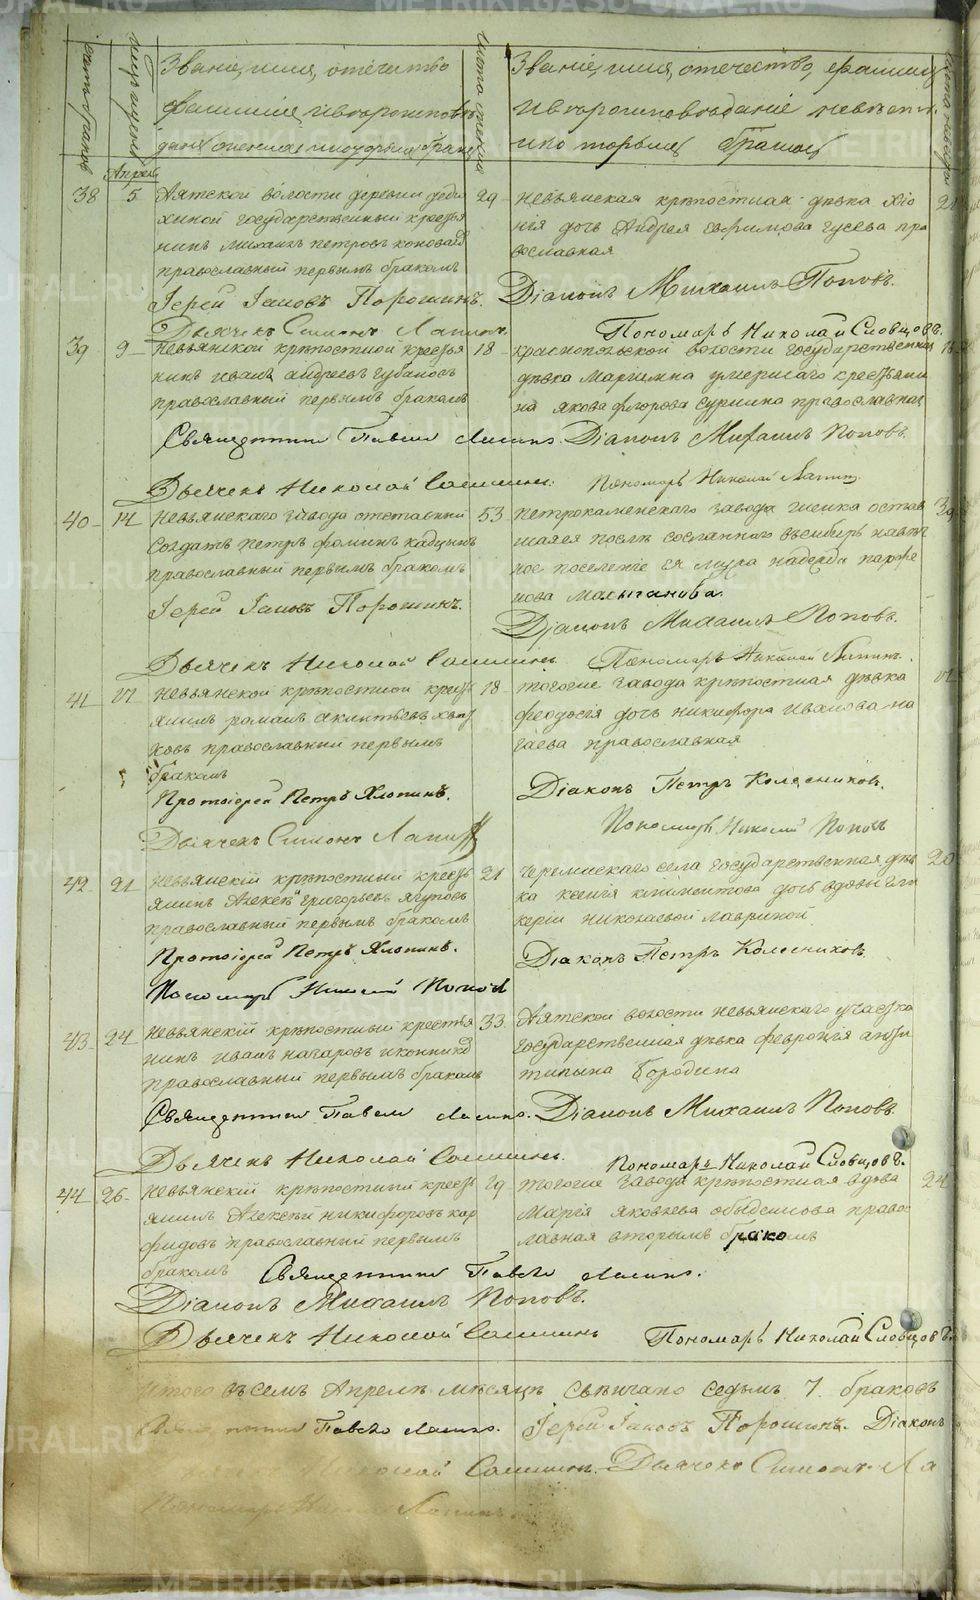 Званіе, имя, отечество
фамилія, и вѣроисповѣ
даніе жениха и которымъ бракомъ
лѣта жениха
Званіе, имя, отечество, фамилія
и вѣроисповѣданіе невѣсты
и которымъ бракомъ
Апрель
38 5 Аятской волости деревни
хиной государственный кресть
янинъ Михаилъ Петровъ Коновал
православный первымъ бракомъ
29
невьянская крѣпостная дѣвка Хіо
нія дочь Андрея Ефимова Гусева пра
вославная
Іерей Іаковъ Порошинъ. Діаконъ Михаилъ Поповъ.
Дьячекъ Симонъ Лапинъ Пономарь Николай Словцовъ.
39 9 невьянской крѣпостной кресть
нинъ Иванъ Андреевъ Губановъ
православный первымъ бракомъ
18
краснопольской волости государственная
дѣвка Маримна умершаго крестьяни
на Якова Федорова Сурнина православная
Священникъ Павелъ Діаконъ Михаилъ Поповъ.
Дьячекъ Николай Пономарь Николай Лапин
40 14 Невьянскаго завода отставный
солдатъ Петръ Фоминъ Кадцынъ
православный первымъ бракомъ
53
Петрокаменскаго завода женка остав
шаяся послѣ сосланнаго въ сибирь на вѣч
ное поселеніе ея мужа Надежда Парфе
нова
Іерей Іаковъ Порошинъ.
Діаконъ Михаилъ Поповъ.
Дьячекъ Николай Пономарь Николай Лапинъ.
41 17 невьянской крѣпостной кресть
янинъ Романъ Акинтьевъ
ховъ православный первымъ
бракомъ
18
тогоже завода крѣпостная дѣвка
Феодосія дочь Никифора Иванова На
гаева православная
Протоіерей Петръ Хлопинъ. Діаконъ Петръ Колесниковъ.
Пономарь Николай Поповъ
Дьячекъ Симонъ Лапин
42 21 Невьянскій крѣпостный кресть
янинъ Алексѣй Григорьевъ Ягуповъ
православный первымъ бракомъ
21
Черемисскаго села государственная дѣв
ка Ксенія Климентова дочь вдовы Гли
керіи Николаевой Лавриной
20
Протоіерей Петръ Хлопинъ. Діаконъ Петръ Колесниковъ.
Пономарь Николай Поповъ
43 24 Невьянскій крѣпостный крестья
нинъ Иванъ Назаровъ Иконнико
православный первымъ бракомъ
33
Аятской волости невьянскаго участка
государственная дѣвка Февронія Анти
пьина Бородина
Священникъ Павелъ Діаконъ Михаилъ Поповъ.
Дьячекъ Николай Пономарь Николай Словцовъ.
44 26 Невьянскій крѣпостный кресть
янинъ Алексѣй Никифоровъ Кар
фидовъ православный первымъ
бракомъ
29
тогоже завода крѣпостная вдова
Марія Яковлева Обыденнова право
славная вторымъ бракомъ
24
Священникъ Павелъ
Діаконъ Михаилъ Поповъ.
Дьячекъ Николай Пономарь Николай Словцовъ.
Итого въ семъ Апрелѣ мѣсяцѣ свѣнчано седьмъ 7 браковъ
Павелъ Іерей Іаковъ Порошинъ. Діаконъ
Николай Дьячекъ Симонъ Ла
Пономарь Лапинъ.
METRIKI.GASO-URAL.RU